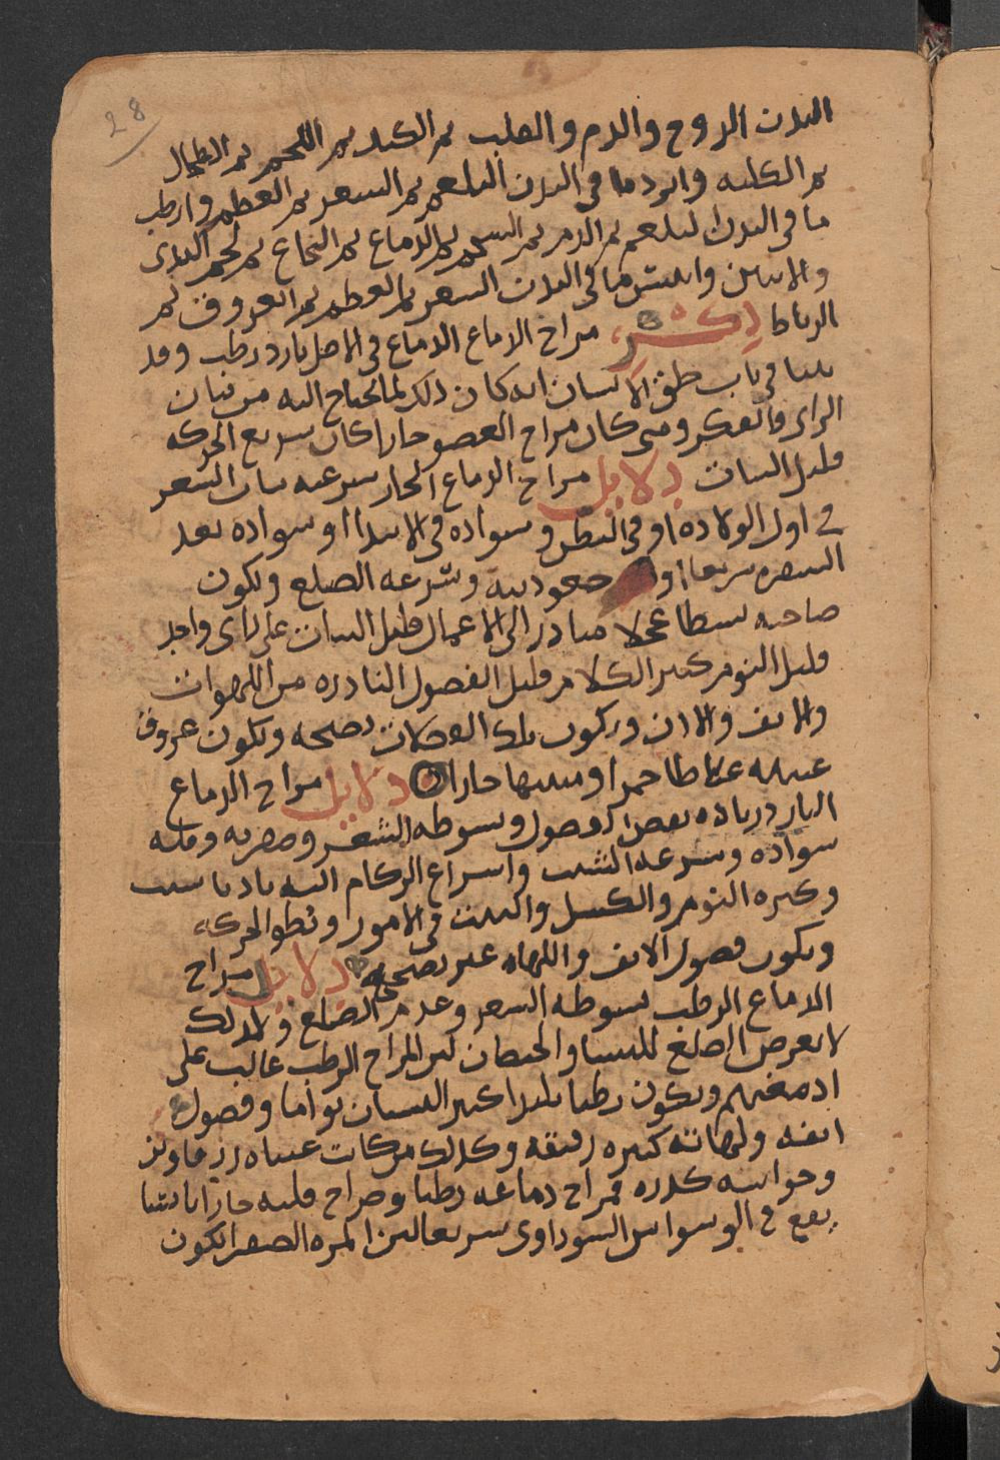 28
البدن الروح والدم والقلب ثم الكبد ثم اللحم ثم الطحال
ثم الكليه وابرد ما في البدن البلغم ثم الشعر ثم العظم وارطب
ما في البدن البلغم ثم الدم ثم السمين ثم الدماغ ثم النخاع ثم لحم الثدي
والانثيين وايبس ما في البدن الشعر ثم العظم ثم العروق ثم
الرباط ذكر مزاج الدماغ الدماغ في الاصل بارد رطب وقد
بينا في باب خلق الانسان انه كان ذلك لما يحتاج اليه من ثبات
الراي والفكر ومتى كان مزاج العضو حارا كان سريع الحركه
قليل الثبات دلايل مزاج الدماغ الحار سرعه نبات الشعر
في اول الولاده او في البطن وسواده في الابتدا او سواده بعد
الشقره سريعا او جعودته وسرعه الصلع ويكون
صاحبه نشطا عجلا مبادرا الى الاعمال قليل الثبات على راي واحد
قليل النوم كثير الكلام قليل الفضول النادره من اللهوات
والانف والاذن ويكون تلك الفضلات نضجه ويكون عروق
عينيه غلاظا حمرا وملمسها حارا دلايل مزاج الدماغ
البارد زياده بعض الفضول وسبوطه الشعر وصهوبه وقله
سواده وسرعه الشيب واسراع الزكام اليه بادنا سبب
وكثره النوم والكسل والتثبت في الامور وبطو الحركه
ويكون فضول الانف واللهاه غير نضجه دلايل مزاج
الدماغ الرطب سبوطه الشعر وعدم الصلع ولذلك
لا يعرض الصلع للنسا والخصيان لان المزاج الرطب غالب على
ادمغتهم ويكون رطبا بليدا كثير النسيان نواما وفضول
انفه ولهاته كثيره رقيقه وكذلك من كانت عيناه زرقاوين
وحواسه كدره فمزاج دماغه رطبا ومزاج قلبه حارا يابسا
يقع في الوسواس السوداوي سريعا لان المره الصفرا تكون